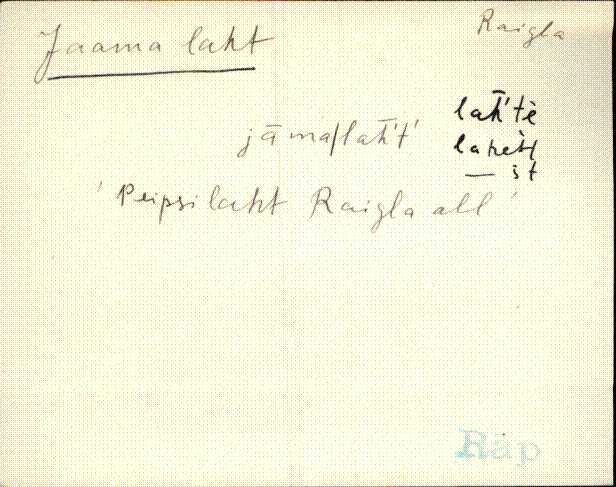 Jaama laht
Raigla
jāma/lah't't'
lah'tè
lahèt
— st
' Peipsi laht Raigla all '
Räp